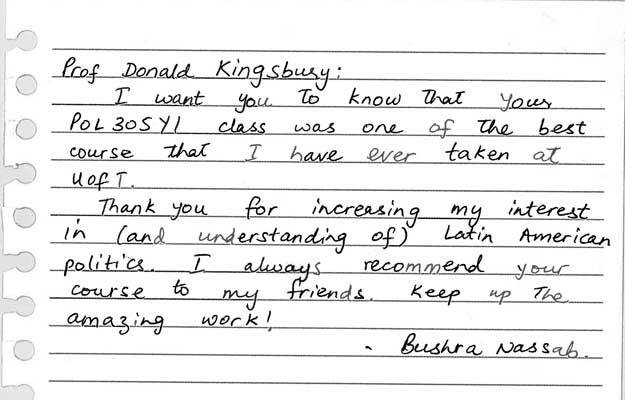 Prof Donald Kingsbury:
I want you to know that your
POL305Y1 class was one of the best
course that I have ever taken at
UofT.
Thank you for increasing my interest
in (and understanding of) Latin American
politics. I always recommend your
course to my friends. Keep up the
amazing work!
- Bushra Nassab.